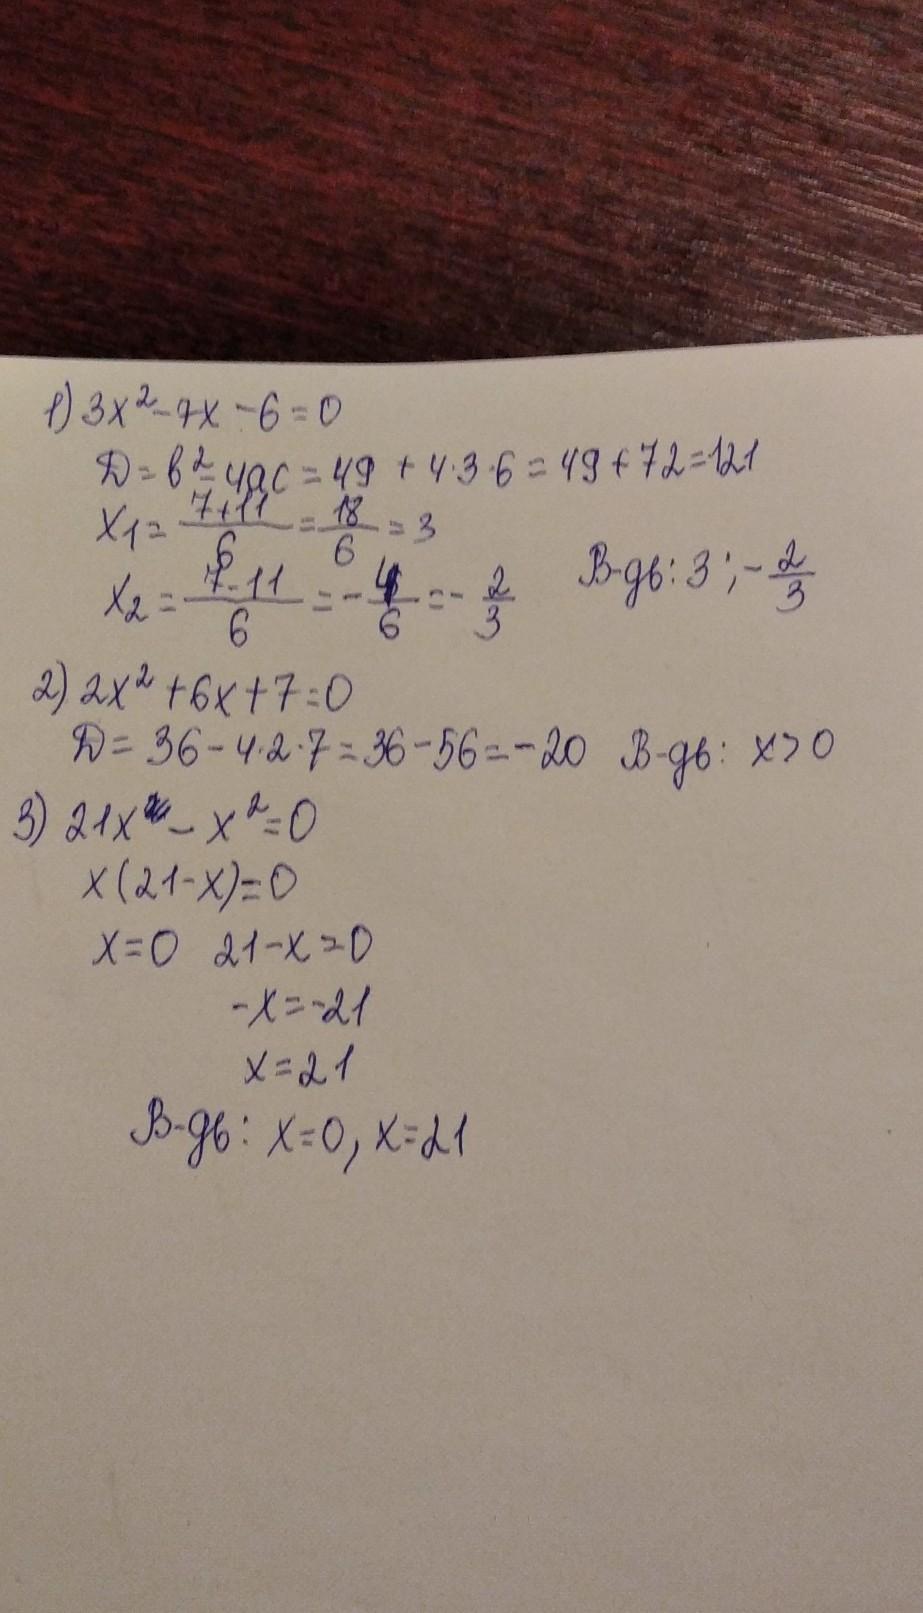 1) 3x² - 7x - 6 = 0
D = b² - 4ac = 49 + 4·3·6 = 49 + 72 = 121
x₁ = (7+11)/6 = 18/6 = 3
x₂ = (7-11)/6 = -4/6 = -2/3 В-дь: 3 ; -2/3
2) 2x² + 6x + 7 = 0
D = 36 - 4·2·7 = 36 - 56 = -20 В-дь: x > 0
3) 21x - x² = 0
x(21-x) = 0
x = 0 21 - x = 0
-x = -21
x = 21
В-дь: x = 0, x = 21